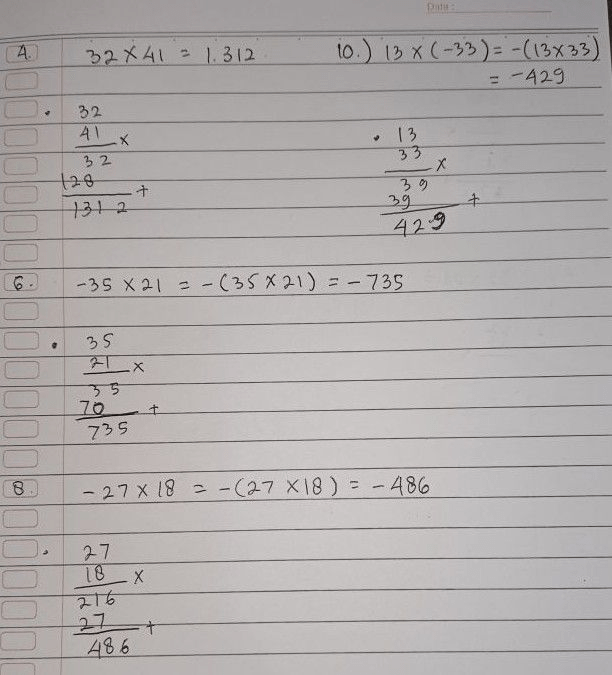 Date:
4. 32 × 41 = 1.312
• 32
41 ×
32
128 +
1312
10.) 13 × (-33) = -(13×33)
= -429
• 13
33 ×
39
39 +
429
6. -35 × 21 = -(35 × 21) = -735
• 35
21 ×
35
70 +
735
8. -27 × 18 = -(27 × 18) = -486
• 27
18 ×
216
27 +
486